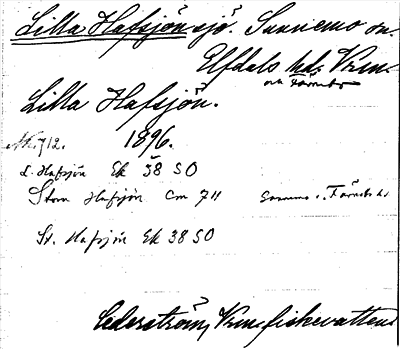 Lilla Hafsjön sjö. Sunnemo sn.
Elfdals hd. Vrm.
och Färnebo
Lilla Hafsjön.
No. 712. 1896.
L. Hafsjön Ek 38 SO
Stora Hafsjön Cm 711 Färnebo hd
St. Hafsjön Ek 38 SO
Cederström, Vrm. fiskevatten